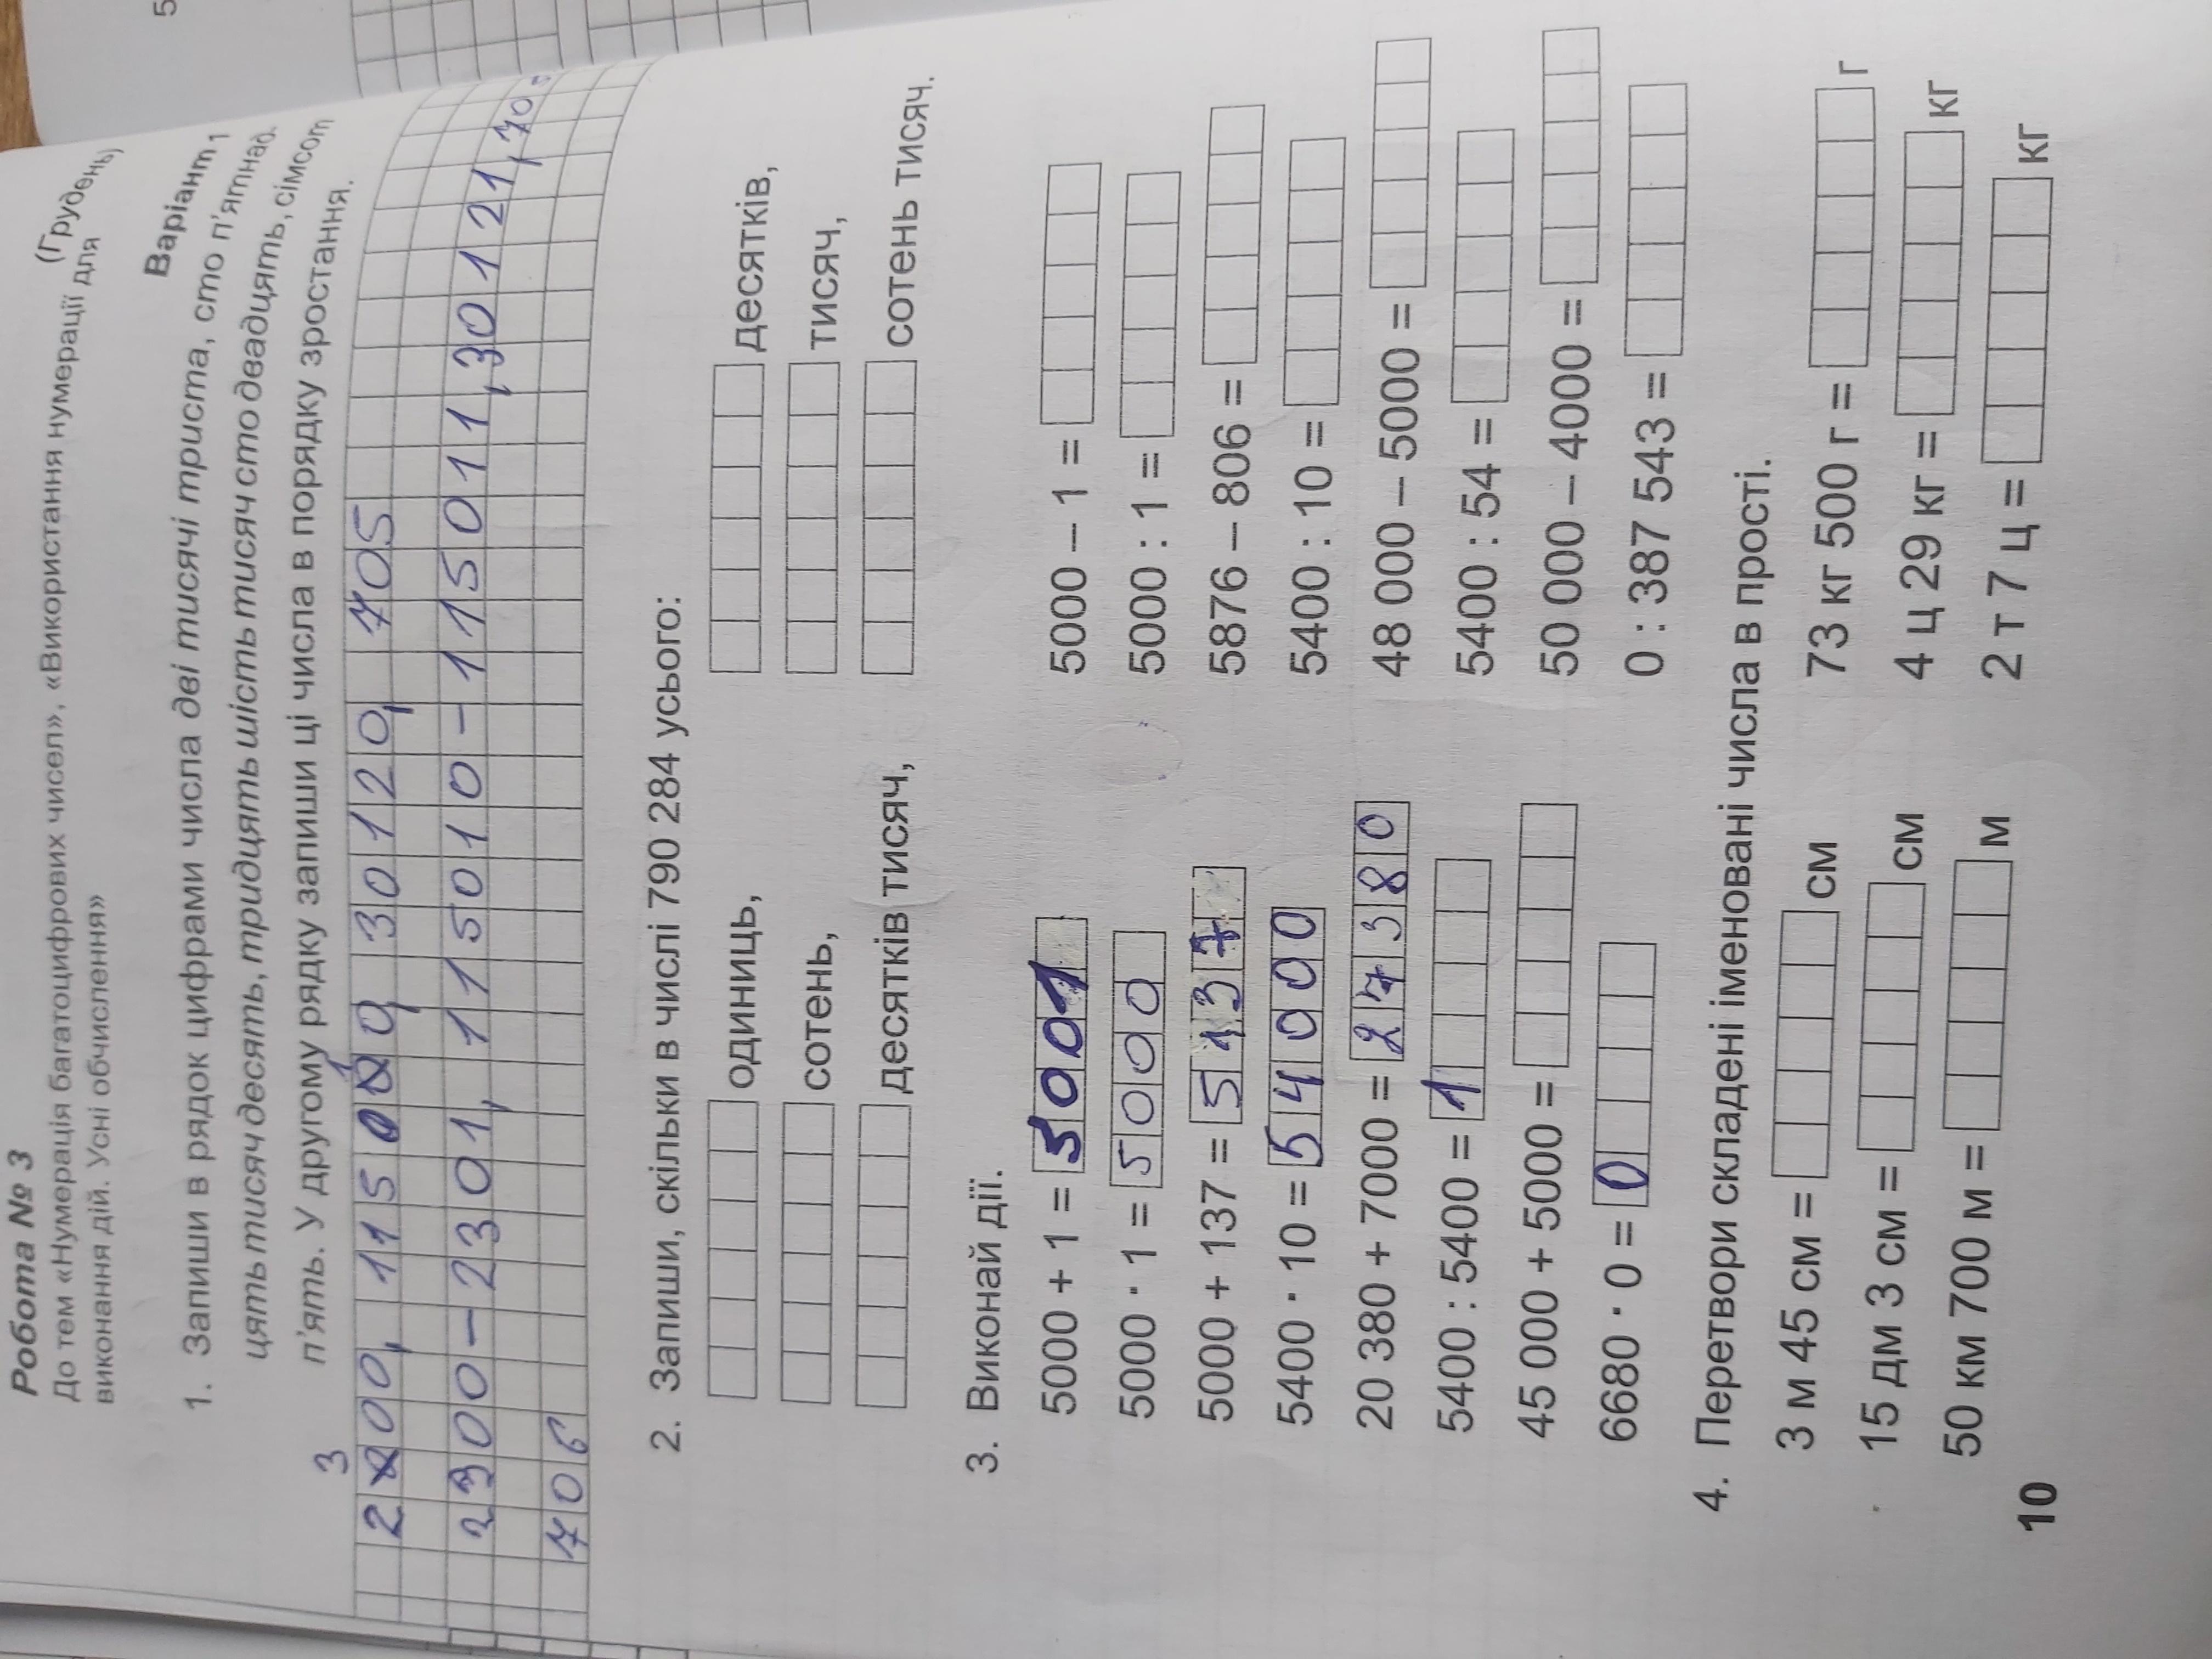 Робота № 3
(Грудень)
До тем «Нумерація багатоцифрових чисел», «Використання нумерації для
виконання дій. Усні обчислення»
Варіант 1
1. Запиши в рядок цифрами числа дві тисячі триста, сто п'ятнад
цять тисяч десять, тридцять шість тисяч сто двадцять, сімсот
п'ять. У другому рядку запиши ці числа в порядку зростання.
3
200, 115 010 30120, 705
2300–2301, 115010–115011, 30121, 70
706
2. Запиши, скільки в числі 790 284 усього:
одиниць, десятків,
сотень, тисяч,
десятків тисяч, сотень тисяч.
3. Виконай дії.
5000 + 1 = 5001 5000 – 1 =
5000 · 1 = 5000 5000 : 1 =
5000 + 137 = 5137 5876 – 806 =
5400 · 10 = 54000 5400 : 10 =
20 380 + 7000 = 27380 48 000 – 5000 =
5400 : 5400 = 1 5400 : 54 =
45 000 + 5000 = 50 000 – 4000 =
6680 · 0 = 0 0 : 387 543 =
4. Перетвори складені іменовані числа в прості.
3 м 45 см = см 73 кг 500 г = г
15 дм 3 см = см 4 ц 29 кг = кг
50 км 700 м = м 2 т 7 ц = кг
10
5